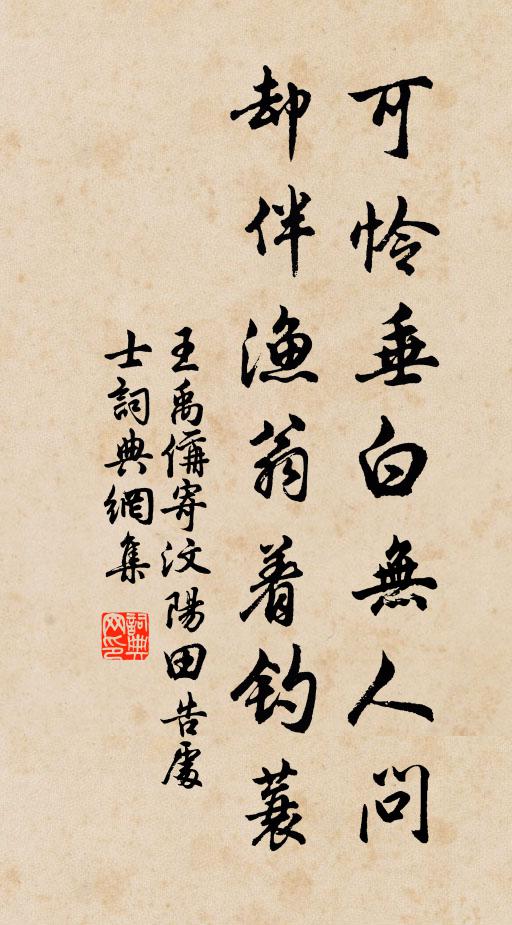 可怜垂白無人問
却伴漁翁着釣蓑
王禹偁寄汶陽田告處
士詞典網集
詞典网印